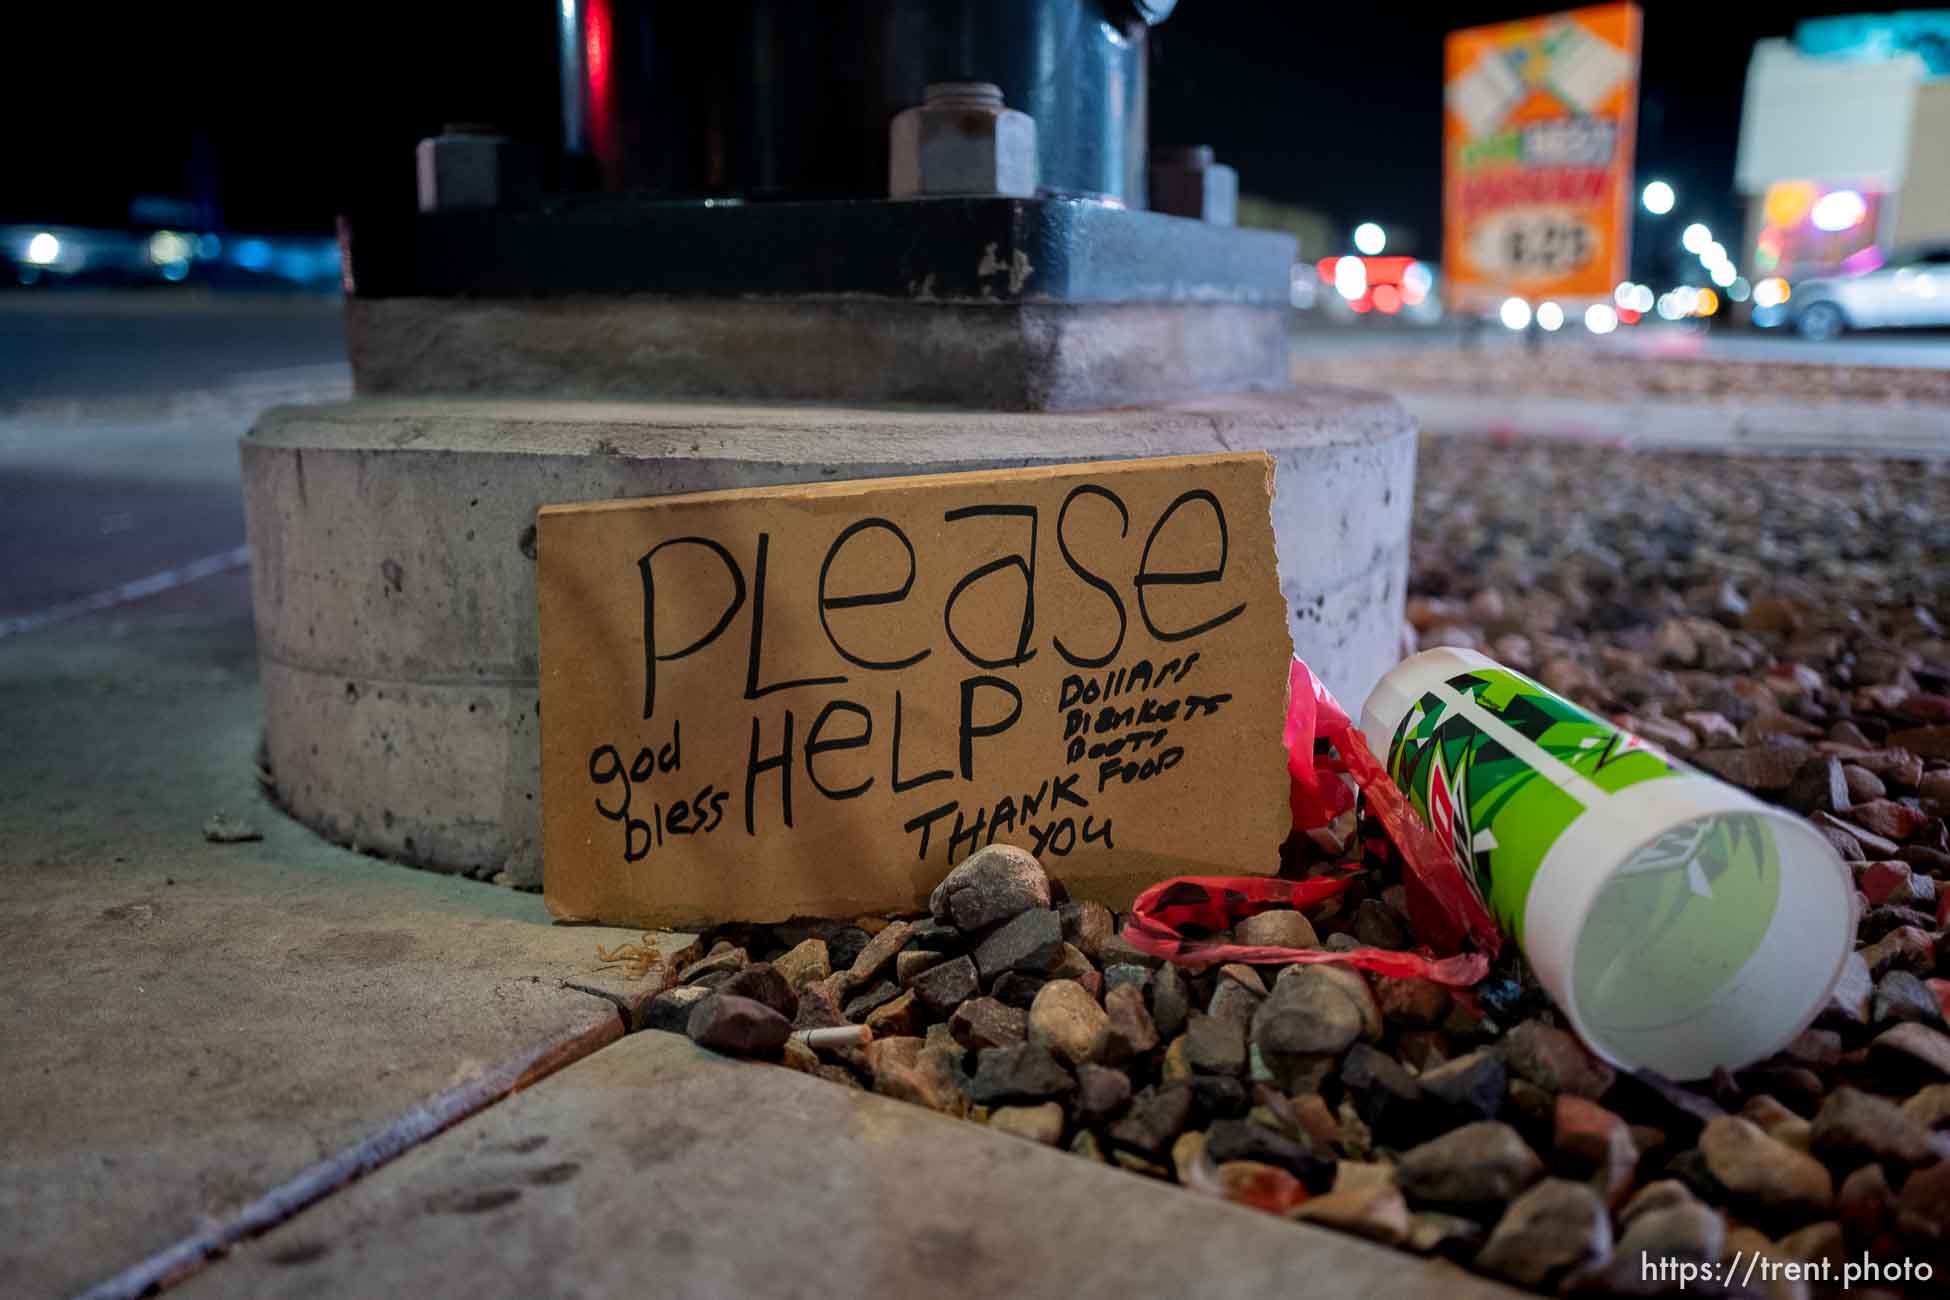 PLease
HeLP
DollArs
BlankeTs
BooTs
Food
god
bless
THANK
YOU
6.25
https://trent.photo